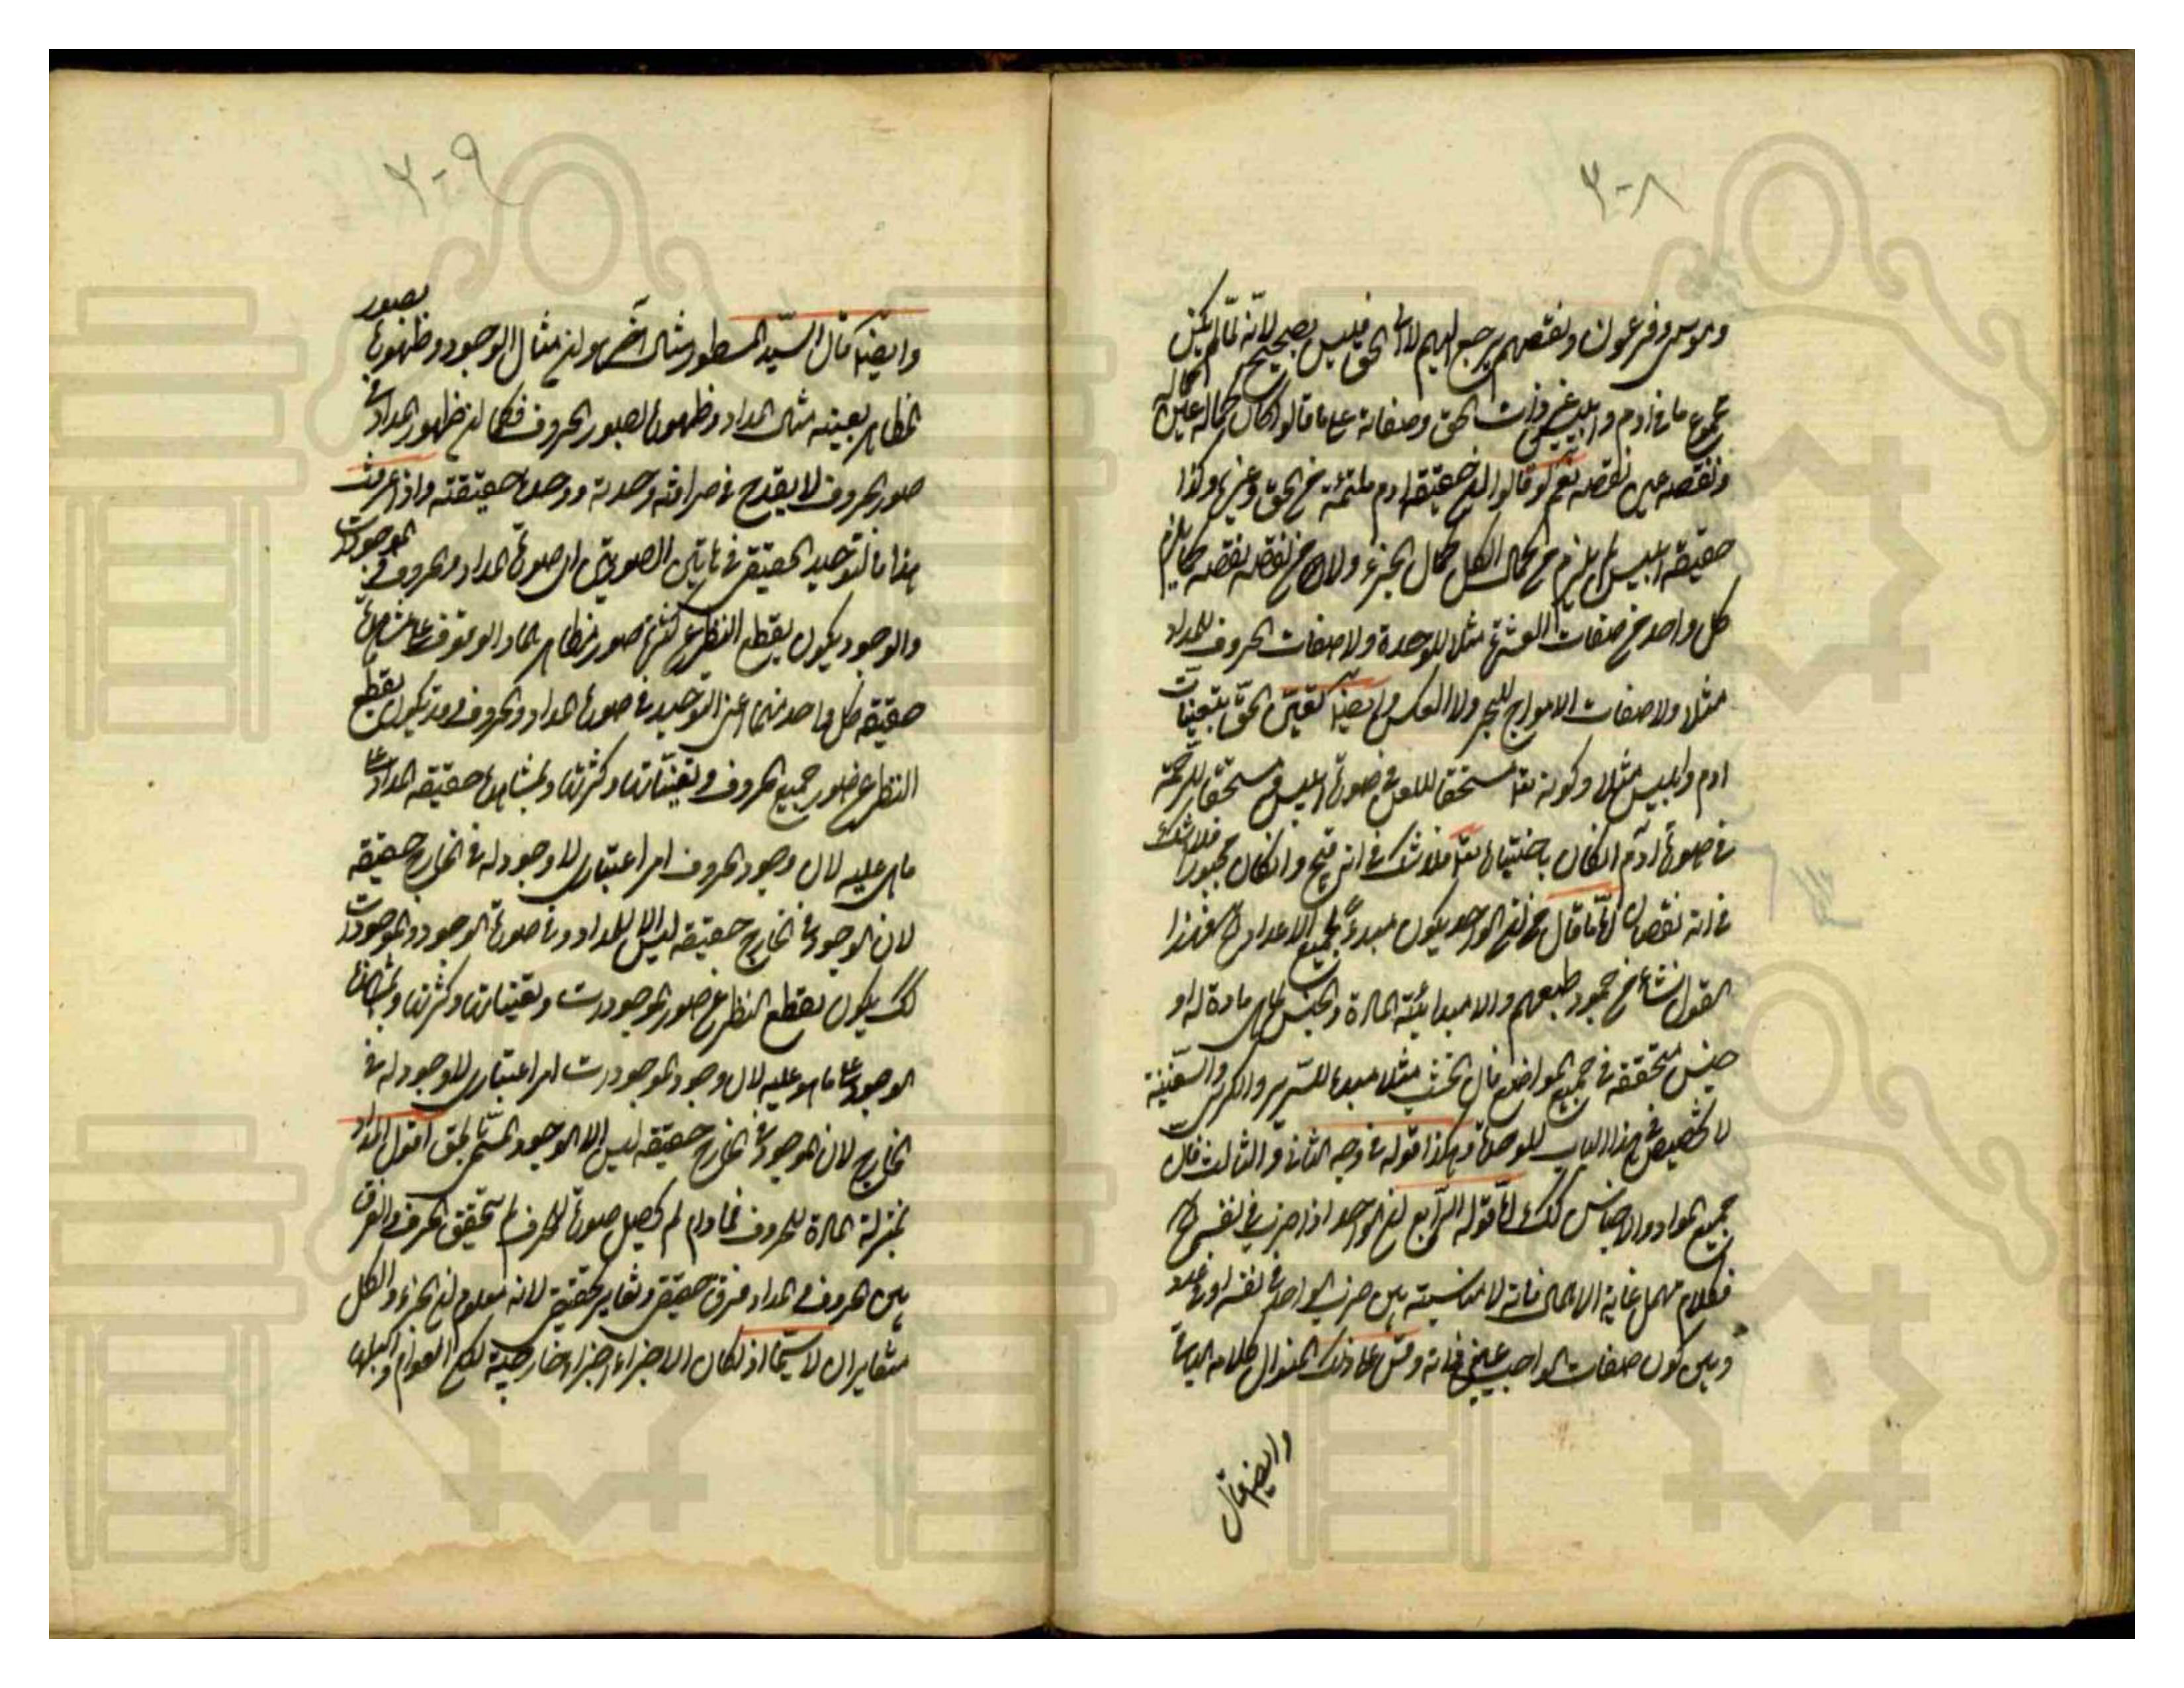 ٣٠٨
وموسى وفرعون ونقصهم يرجع اليهم لا الى الحق فليس بصحيح لانه لما لم يكن
مجموع ما فى آدم وابليس غير ذات الحق وصفاته على ما قالوا كان كماله عين كماله
ونقصه عين نقصه نعم لو قالوا ان حقيقة ادم ملتئمة من الحق وغيره وكذا
حقيقة ابليس لم يلزم من كمال الكل كمال الجزء ولا من نقصه نقصه كما لا يلزم
كل واحد من صفات العشرة مثلا للوحدة ولا صفات الحروف للمداد
مثلا ولا صفات الامواج للبحر ولا العكس وايضا تعين الحق بتعينات
ادم وابليس مثلا وكونه تعا مستحقا للعن فى صورة ابليس ومستحقا للرحمة
فى صورة آدم ان كان باختياره تعا فلا شك فى انه قبيح وان كان مجبورا فلا شك
فى انه نقصان واما ما قال من ان الواحد يكون مبدءً لجميع الاعداد فهذا
القول نشأ من جمود طبعهم والا مبدائية المادة والجنس لما هى مادة له او
جنس متحققة فى جميع المواضع فان الخشب مثلا مبداء للسرير والكرسى والسفينة
لا تخصيص فى هذا الباب للوحدة وهكذا قوله فى وجه الثانى والثالث فان
جميع المواد والاجناس كك واما قوله الرابع ان الواحد اذا ضرب فى نفسه
فكلام مهمل غاية الاهمال فانه لا مناسبة بين ضرب الواحد فى نفسه او
وبين كون صفات الواجب عين ذاته وقس على ذلك المنوال كلامه
وايضا قال
٣٠٩
وايضا قال السيد المسطور مثال آخر وهو ان مثال الوجود وظهوره بصور
المظاهر بعينه مثال المداد وظهوره بصور الحروف فكما ان ظهور المداد فى
صور الحروف لا يقدح فى صرافته وحدته ووحدة حقيقته واذا عرفت
هذا فالتوحيد الحقيقى فى هاتين الصورتين اى صورة المداد والحروف والموجودات
والوجود يكون بقطع النظر عن كثرة صور مظاهرهما والوقوف على مشاهدة
حقيقة كل واحد منهما اعنى التوحيد فى صورة المداد والحروف يكون بقطع
النظر عن صور جميع الحروف وتعيناتها وكثرتها وبمشاهدة حقيقة المداد على
ما هى عليه لان وجود الحروف امر اعتبارى لا وجود له فى الخارج حقيقة
لان الموجود فى الخارج حقيقة ليس الا المداد وفى صورة الوجود والموجودات
كك يكون بقطع النظر عن صور الموجودات وتعيناتها وكثرتها وبمشاهدة
الوجود على ما هو عليه لان وجود الموجودات امر اعتبارى لا وجود له فى
الخارج لان الموجود فى الخارج حقيقة ليس الا الوجود المسمى بالحق اقول المداد
بمنزلة المادة للحروف فما دام لم يحصل صورة الحرف لم يتحقق الحرف والفرق
بين الحروف والمداد فرق حقيقى وتغاير حقيقى لانه معلوم ان الجزء والكل
متغايران لا سيما اذا كان الاجزاء اجزاء خارجية لكن العوام